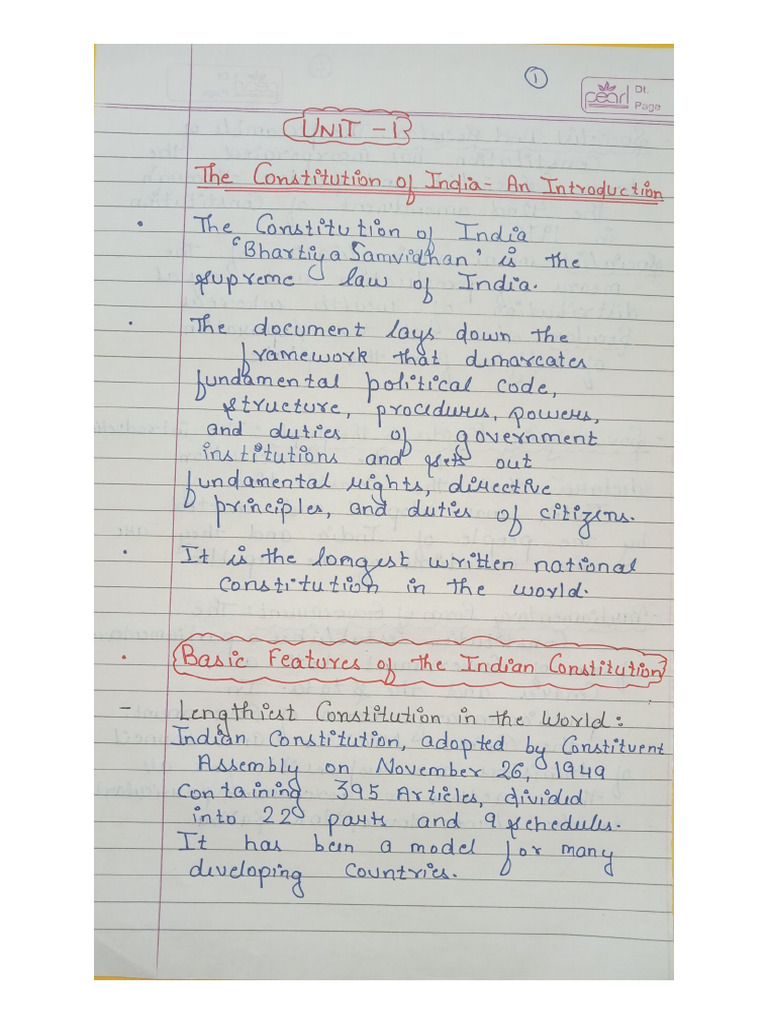 1
pearl
Dt.
Page
UNIT - 1
The Constitution of India - An Introduction
• The Constitution of India
'Bhartiya Samvidhan' is the
supreme law of India.
• The document lays down the
framework that dimarcates
fundamental political code,
structure, procedures, powers,
and duties of government
institutions and sets out
fundamental rights, directive
principles, and duties of citizens.
• It is the longest written national
constitution in the world.
• Basic Features of the Indian Constitution
- Lengthiest Constitution in the World:
Indian Constitution, adopted by Constituent
Assembly on November 26, 1949
containing 395 Articles, divided
into 22 parts and 9 schedules.
It has been a model for many
developing countries.